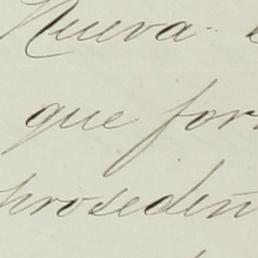 Nueva
que for
prosedem